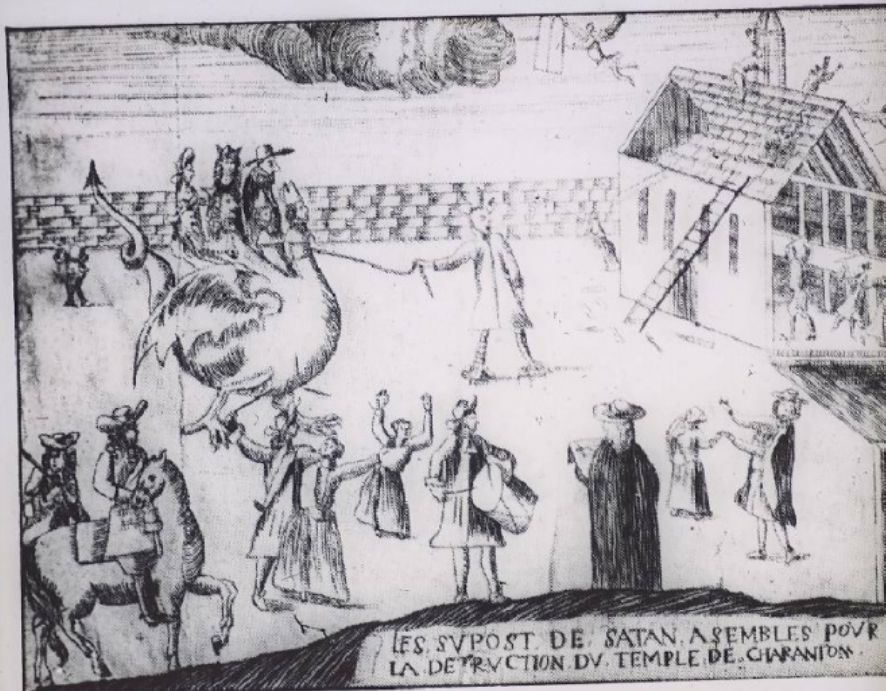 LES. SVPOST. DE. SATAN. ASEMBLES POVR
LA DETRVCTION. DV. TEMPLE. DE. CHARANTON.